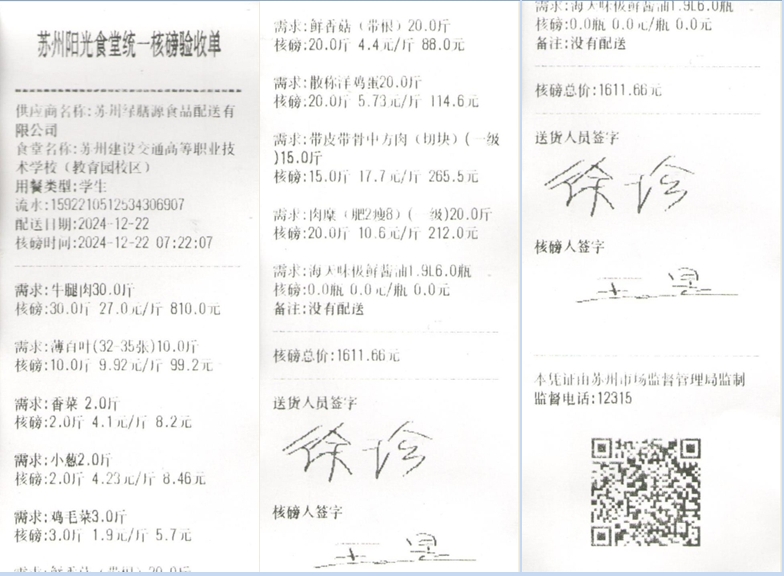 苏州阳光食堂统一核磅验收单
供应商名称:苏州绿膳源食品配送有
限公司
食堂名称:苏州建设交通高等职业技
术学校（教育园校区）
用餐类型:学生
流水:1592210512534306907
配送日期:2024-12-22
核磅时间:2024-12-22 07:22:07
需求:牛腿肉30.0斤
核磅:30.0斤 27.0元/斤 810.0元
需求:薄百叶(32-35张)10.0斤
核磅:10.0斤 9.92元/斤 99.2元
需求:香菜 2.0斤
核磅:2.0斤 4.1元/斤 8.2元
需求:小葱2.0斤
核磅:2.0斤 4.23元/斤 8.46元
需求:鸡毛菜3.0斤
核磅:3.0斤 1.9元/斤 5.7元
需求:鲜香菇（带根）20.0斤
需求:鲜香菇（带根）20.0斤
核磅:20.0斤 4.4元/斤 88.0元
需求:散称洋鸡蛋20.0斤
核磅:20.0斤 5.73元/斤 114.6元
需求:带皮带骨中方肉（切块）(一级
)15.0斤
核磅:15.0斤 17.7元/斤 265.5元
需求:肉糜（肥2瘦8）(一级)20.0斤
核磅:20.0斤 10.6元/斤 212.0元
需求:海天味极鲜酱油1.9L6.0瓶
核磅:0.0瓶 0.0元/瓶 0.0元
备注:没有配送
核磅总价:1611.66元
送货人员签字
徐珍
核磅人签字
王昱
需求:海天味极鲜酱油1.9L6.0瓶
核磅:0.0瓶 0.0元/瓶 0.0元
备注:没有配送
核磅总价:1611.66元
送货人员签字
徐珍
核磅人签字
王昱
本凭证由苏州市场监督管理局监制
监督电话:12315